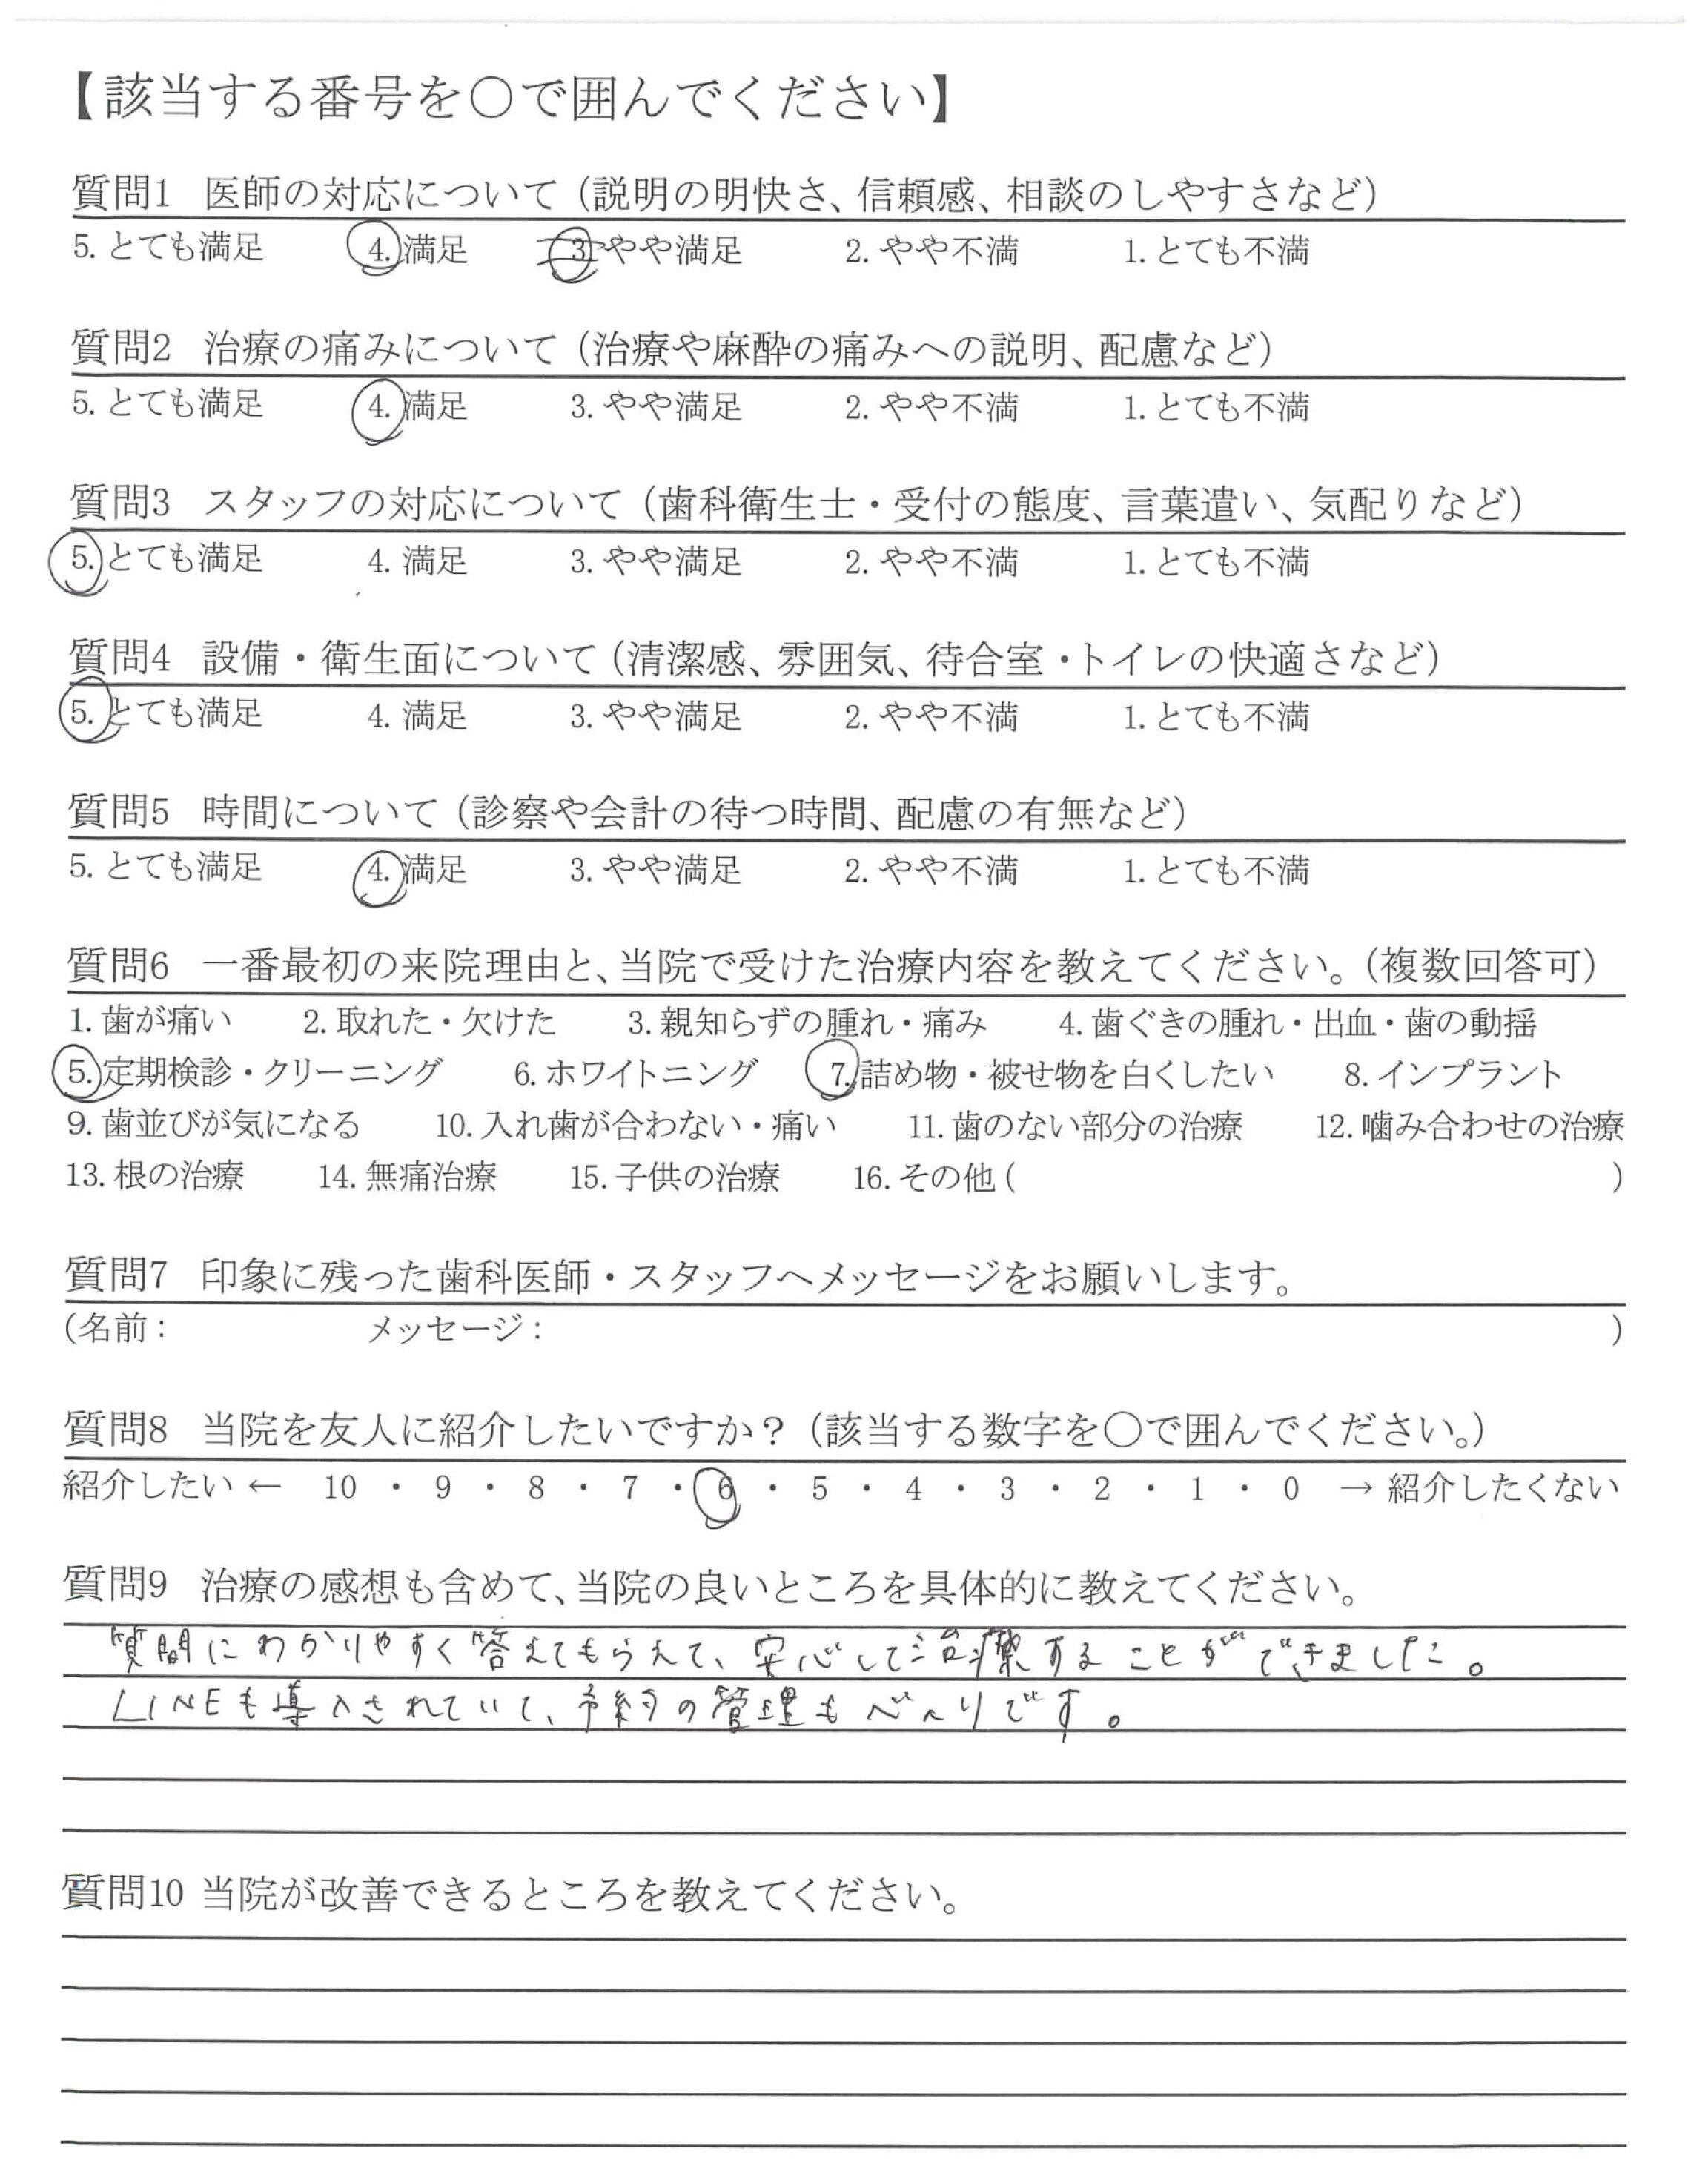 【該当する番号を○で囲んでください】
質問1 医師の対応について（説明の明快さ、信頼感、相談のしやすさなど）
5. とても満足 4. 満足 3. やや満足 2. やや不満 1. とても不満
質問2 治療の痛みについて（治療や麻酔の痛みへの説明、配慮など）
5. とても満足 4. 満足 3. やや満足 2. やや不満 1. とても不満
質問3 スタッフの対応について（歯科衛生士・受付の態度、言葉遣い、気配りなど）
5. とても満足 4. 満足 3. やや満足 2. やや不満 1. とても不満
質問4 設備・衛生面について（清潔感、雰囲気、待合室・トイレの快適さなど）
5. とても満足 4. 満足 3. やや満足 2. やや不満 1. とても不満
質問5 時間について（診察や会計の待つ時間、配慮の有無など）
5. とても満足 4. 満足 3. やや満足 2. やや不満 1. とても不満
質問6 一番最初の来院理由と、当院で受けた治療内容を教えてください。（複数回答可）
1. 歯が痛い 2. 取れた・欠けた 3. 親知らずの腫れ・痛み 4. 歯ぐきの腫れ・出血・歯の動揺
5. 定期検診・クリーニング 6. ホワイトニング 7. 詰め物・被せ物を白くしたい 8. インプラント
9. 歯並びが気になる 10. 入れ歯が合わない・痛い 11. 歯のない部分の治療 12. 噛み合わせの治療
13. 根の治療 14. 無痛治療 15. 子供の治療 16. その他（ ）
質問7 印象に残った歯科医師・スタッフへメッセージをお願いします。
（名前： メッセージ： ）
質問8 当院を友人に紹介したいですか？（該当する数字を○で囲んでください。）
紹介したい ← 10 ・ 9 ・ 8 ・ 7 ・ 6 ・ 5 ・ 4 ・ 3 ・ 2 ・ 1 ・ 0 → 紹介したくない
質問9 治療の感想も含めて、当院の良いところを具体的に教えてください。
質問にわかりやすく答えてもらえて、安心して治療することができました。
LINEも導入されていて、予約の管理もべんりです。
質問10 当院が改善できるところを教えてください。